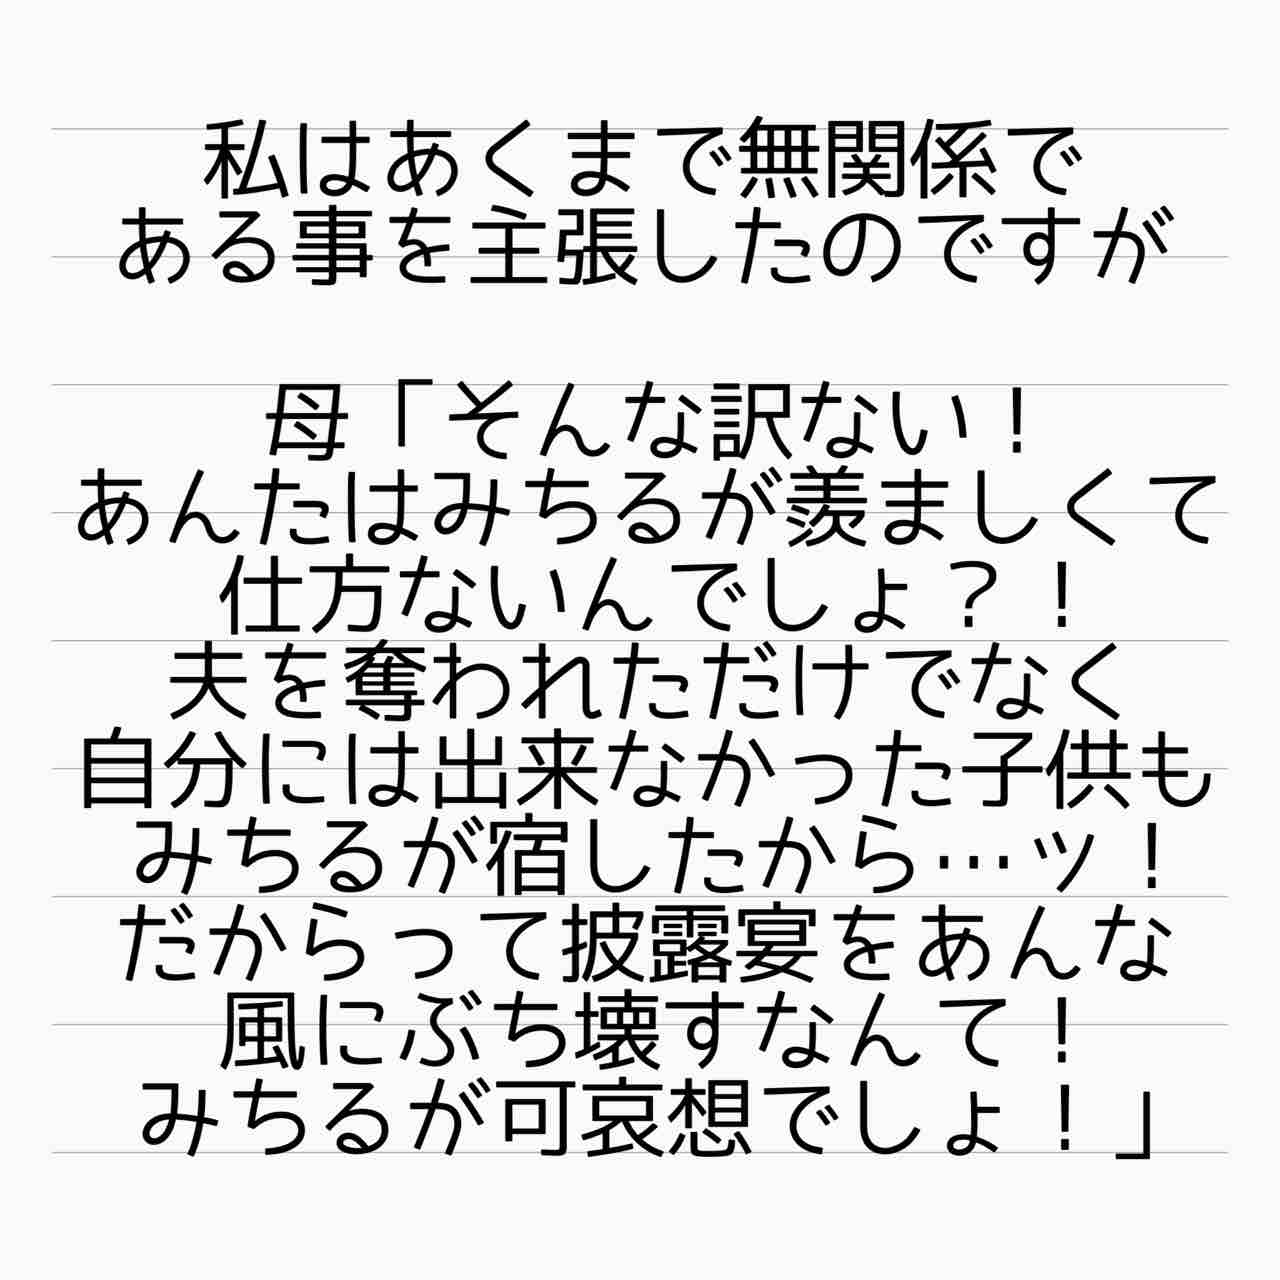 私はあくまで無関係で
ある事を主張したのですが
母「そんな訳ない！
あんたはみちるが羨ましくて
仕方ないんでしょ？！
夫を奪われただけでなく
自分には出来なかった子供も
みちるが宿したから…ッ！
だからって披露宴をあんな
風にぶち壊すなんて！
みちるが可哀想でしょ！」